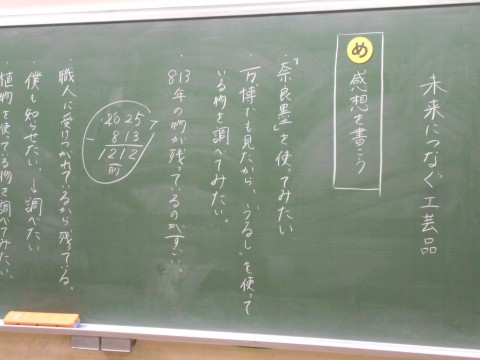 未来につなぐ工芸品
め
感想を書こう
・「奈良墨」を使ってみたい
・万博でも見たから、「うるし」を使って
いる物を調べてみたい。
・813年の物が残っているのがすごい。
2025
- 813
1212
前
・職人に受けつがれているから残っている。
・僕も知らせたい→調べたい
・植物を使ってる物を調べてみたい。